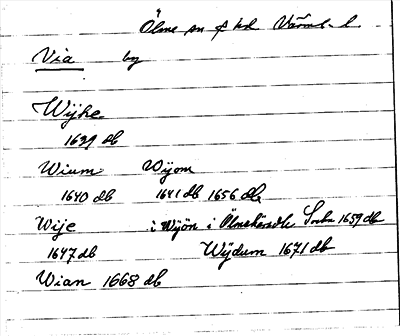 Ölme sn f hd Värml. l
Via by
Wijke
1629 db
Wium Wijom
1640 db 1641 db 1656 db
Wije i Wijön i Ölmehäradh Socken 1659 db
1647 db Wijdum 1671 db
Wian 1668 db